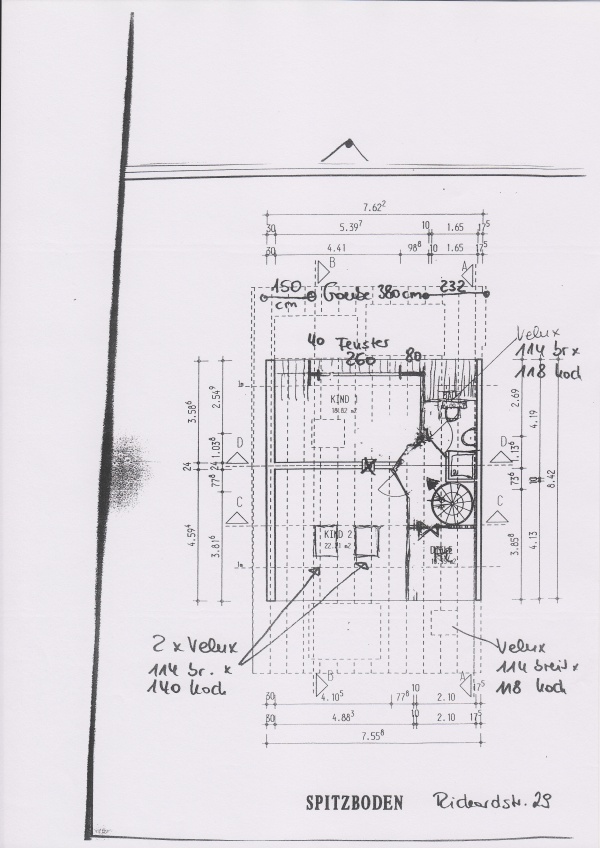 7.62²
30 5.39⁷ 10 1.65 17⁵
30 4.41 98⁸ 10 1.65 17⁵
B A
150 cm Gaube 380cm 232
40 Fenster 260 80
Velux
114 br x
118 hoch
KIND 1
3.58⁶ 2.54⁹ 2.69 4.19
24 24 1.03⁶ 1.13⁶ 10 8.42
77⁸ 73⁶
D D
C C
4.59⁴ 3.81⁶ 3.85⁸ 4.13
1m
KIND 2
1m
2 x Velux
114 br. x
140 hoch
Velux
114 breit x
118 hoch
B A
30 4.10⁵ 77⁸ 10 2.10 17⁵
30 4.88³ 10 2.10 17⁵
7.55⁸
SPITZBODEN Richardstr. 29